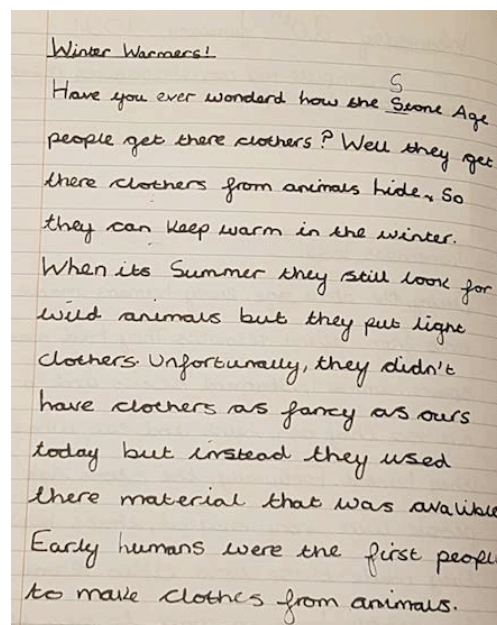 Winter Warmers!
S
Have you ever wonderd how the Stone Age
people get there clothers? Well they get
there clothers from animals hide, So
they can keep warm in the winter.
When its Summer they still look for
wild animals but they put light
clothers. Unfortunally, they didn't
have clothers as fancy as ours
today but instead they used
there material that was avalible
Early humans were the first people
to make clothes from animals.